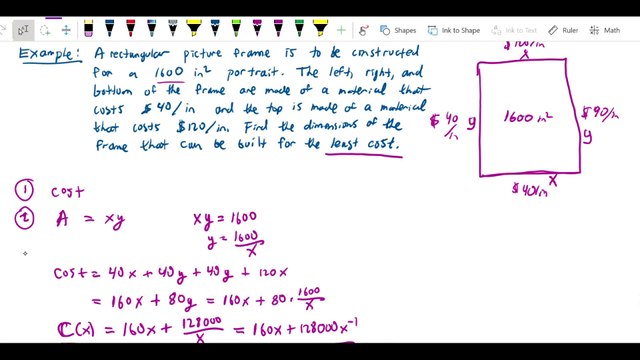 Shapes
Ink to Shape
Ink to Text
$120/in
x
Example: A rectangular picture frame is to be constructed
for a 1600 in² portrait. The left, right, and
bottom of the frame are made of a material that
costs $40/in and the top is made of a material
that costs $120/in. Find the dimensions of the
frame that can be built for the least cost.
$40/in y
1600 in²
$40/in
y
x
$40/in
① Cost
② A = xy
xy = 1600
y = 1600/x
Cost = 40x + 40y + 40y + 120x
= 160x + 80y = 160x + 80 · 1600/x
C(x) = 160x + 128000/x = 160x + 128000x⁻¹